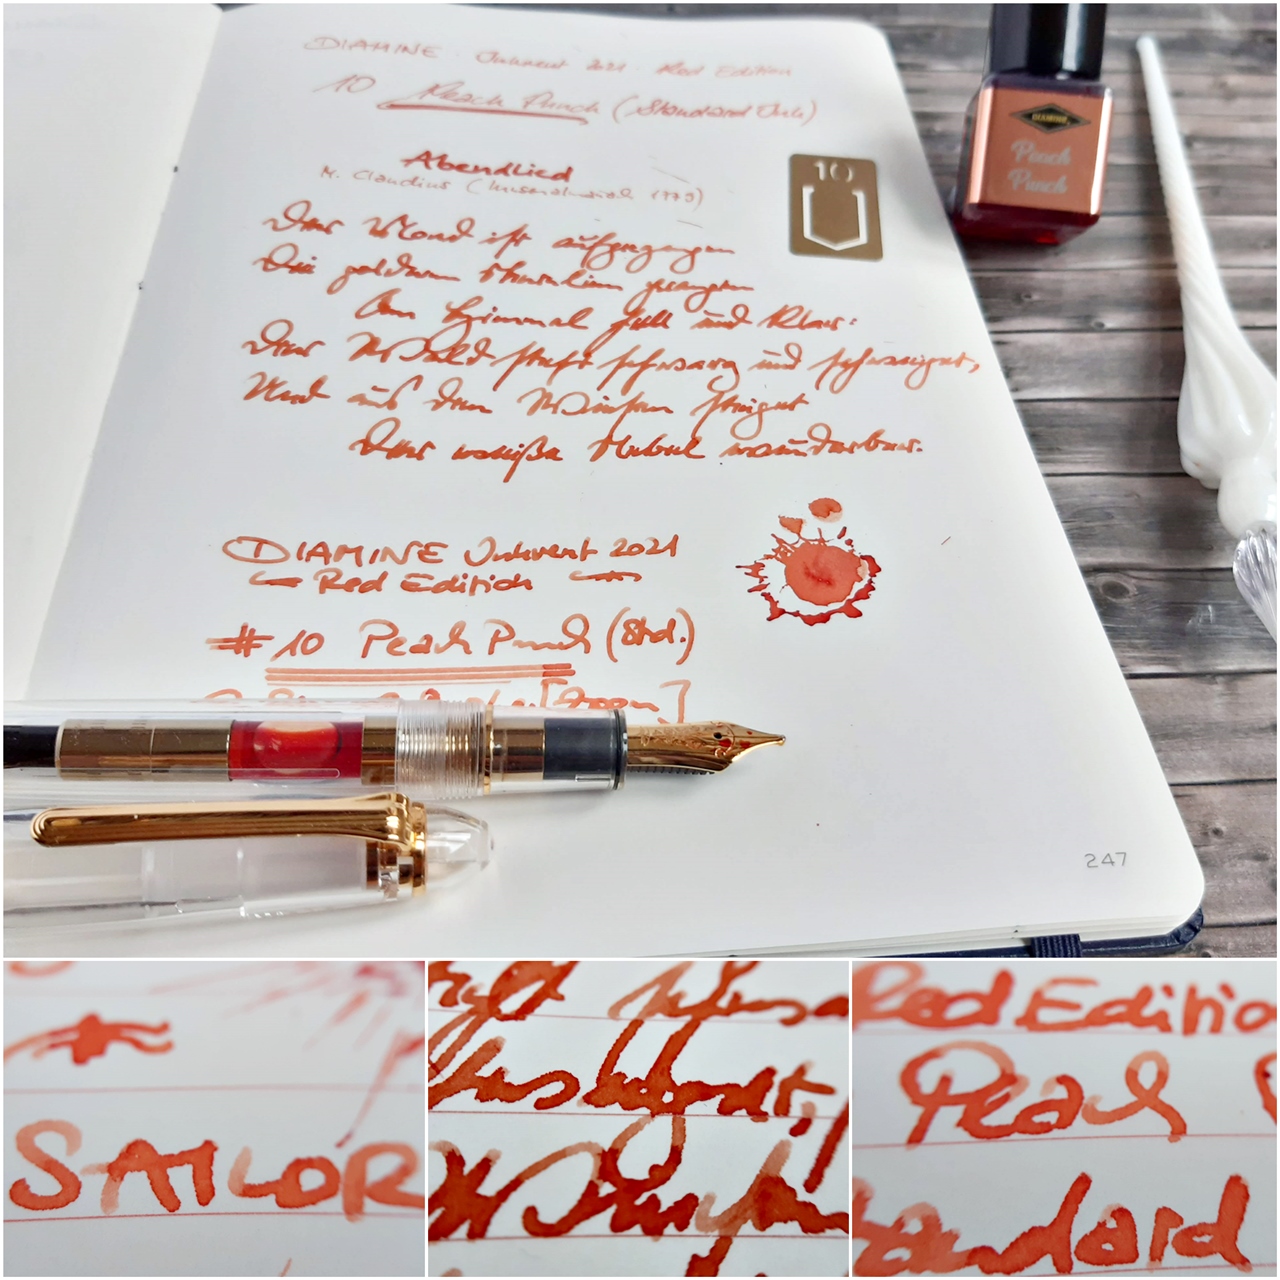 DIAMINE Inkvent 2021 Red Edition
10 Peach Punch (Standard Ink)
Abendlied
M. Claudius (Musenalmanach 1779)
Der Mond ist aufgegangen
Die goldnen Sternlein prangen
Am Himmel hell und klar:
Der Wald steht schwarz und schweiget,
Und aus den Wiesen steiget
Der weiße Nebel wunderbar.
DIAMINE Inkvent 2021
Red Edition
#10 Peach Punch (Std.)
10
DIAMINE
Peach
Punch
247
SAILOR
Red Editio
Peach
andard